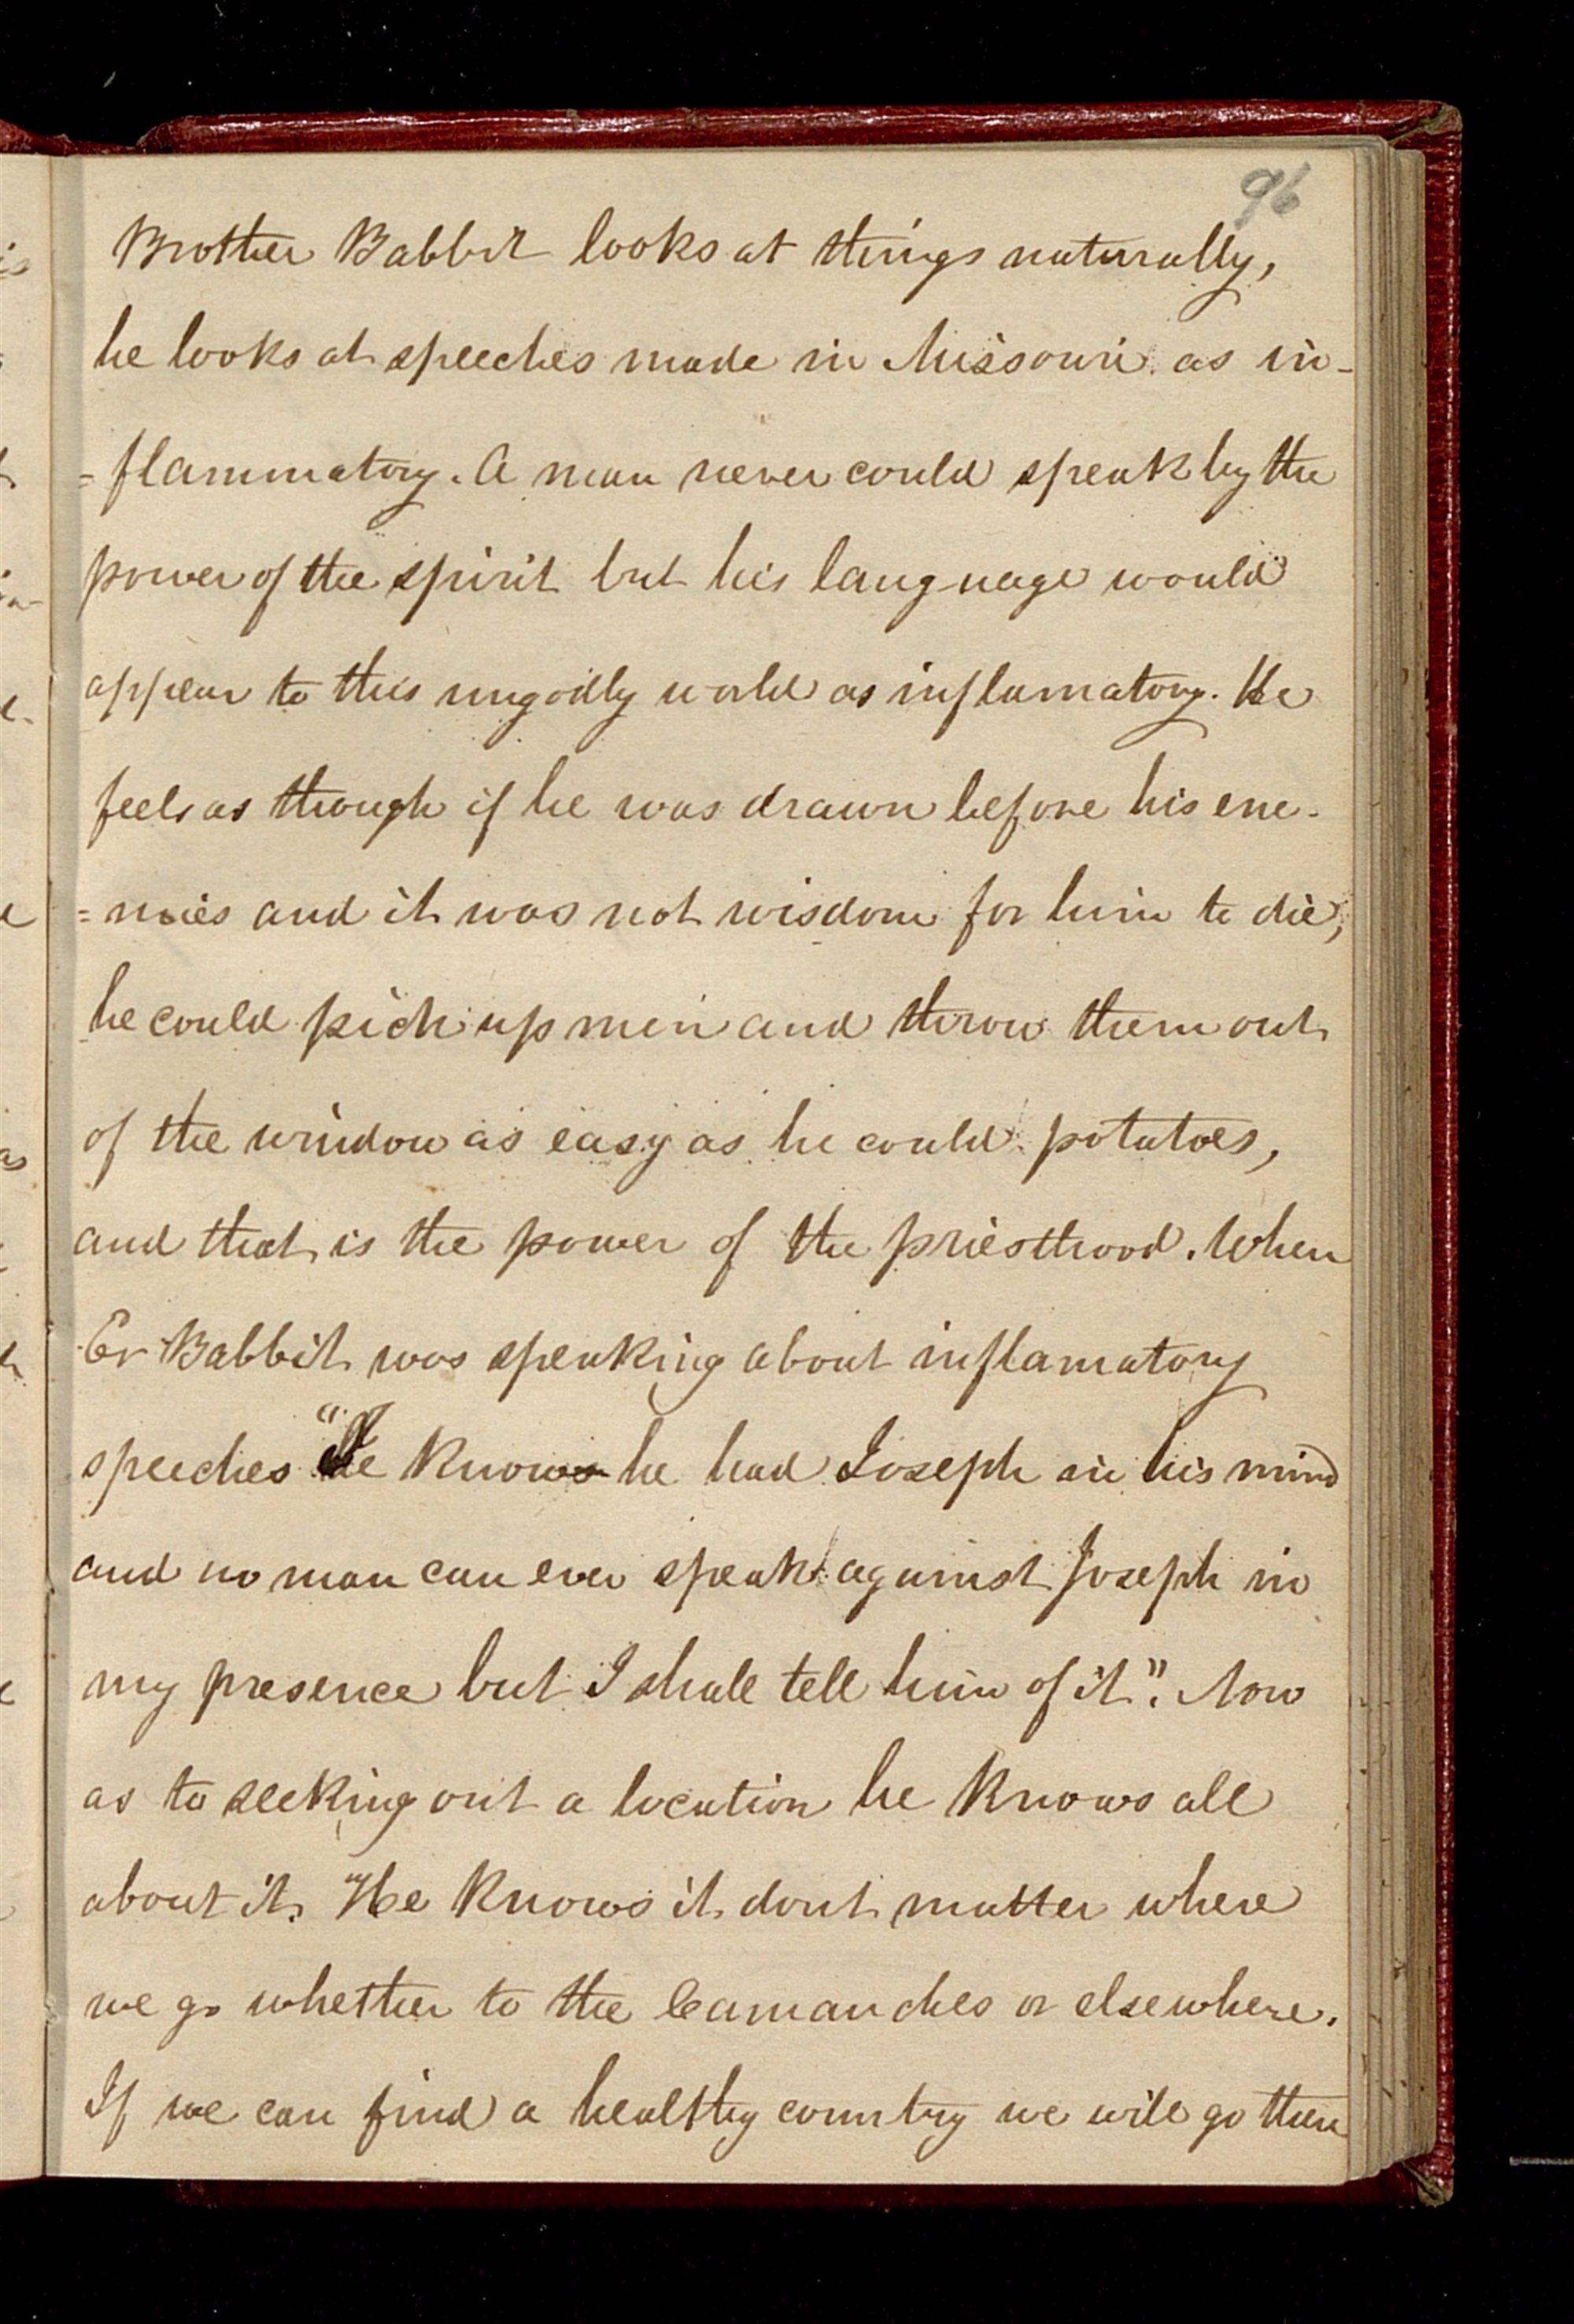 96
Brother Babbit looks at things naturally,
he looks at speeches made in Missouri as in-
=flammatory. A man never could speak by the
power of the spirit but his language would
appear to this ungodly world as inflamatory. He
feels as though if he was drawn before his ene-
=mies and it was not wisdom for him to die,
he could pick up men and throw them out
of the window as easy as he could potatoes,
and that is the power of the priesthood. When
Er Babbit was speaking about inflamatory
speeches "I know he had Joseph in his mind
and no man can ever speak against Joseph in
my presence but I shall tell him of it". Now
as to seeking out a location he knows all
about it. He knows it dont matter where
we go whether to the Camanches or elsewhere.
If we can find a healthy country we will go there